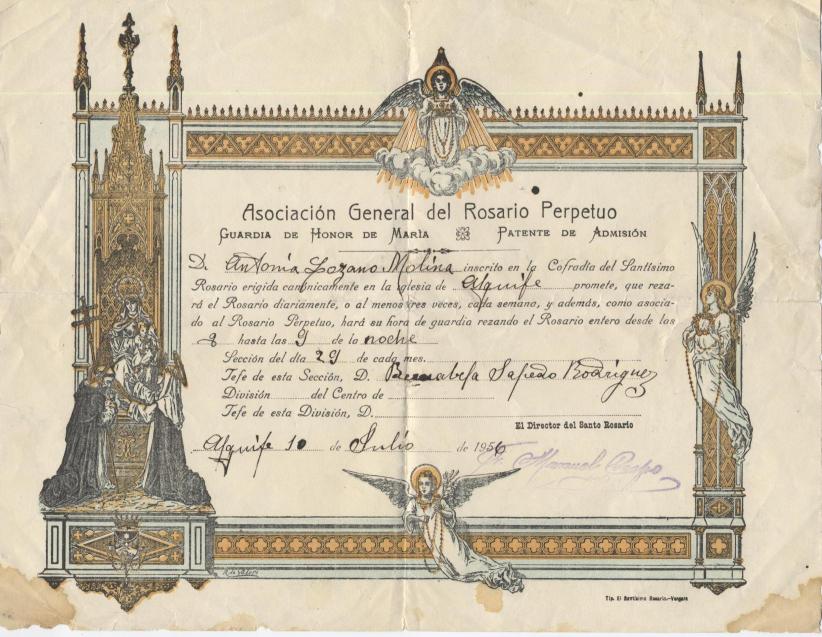 Asociación General del Rosario Perpetuo
Guardia de Honor de María Patente de Admisión
D. Antonia Lozano Molina inscrito en la Cofradía del Santísimo
Rosario erigida canónicamente en la iglesia de Alquife promete, que reza-
rá el Rosario diariamente, o al menos tres veces, cada semana, y además, como asocia-
do al Rosario Perpetuo, hará su hora de guardia rezando el Rosario entero desde las
8 hasta las 9 de la noche
Sección del día 29 de cada mes.
Jefe de esta Sección, D. Rodriguez
División del Centro de
Jefe de esta División, D.
El Director del Santo Rosario
Alquife 10 de Julio de 1956
Fr. Manuel
Tip. El Santísimo Rosario.-Vergara